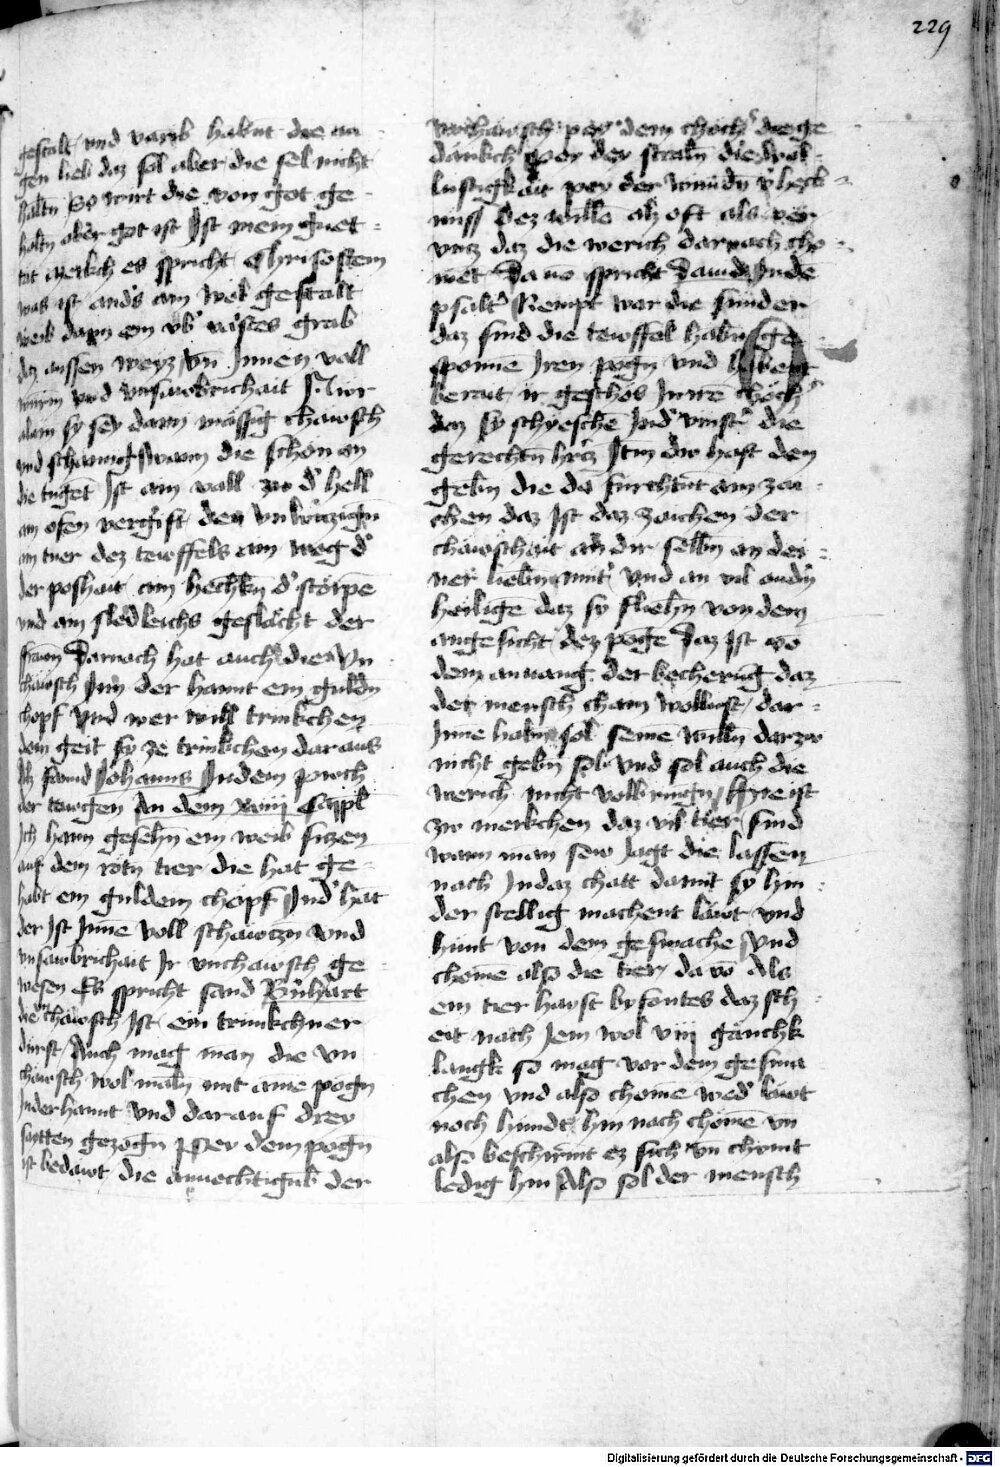 229
gestalt und varib habnt die au
gen lieb daz sol aber die sel nicht
haltn So wirt die von got ge
holtn aber got ist Ist mein guet
tat merkch es spricht Chrisostem
was ist anders ain wol gestalt
weib dann ein vbˀ grab
daz aussen weyz vn Innen voll
wurm vnd vnsawbrichait
alain sy sey dann mässig chewsch
und schamig wann die schon an
die tuget Ist ain vall zw dˀ hell
ain ofen vergift den vnwiczign
ain tuer dez tewffels ain weg dˀ
der poshait ain hechkn dˀ
und ain geslächt der
frawn Darnach hat auch die vn
chewsch Inn der hannt ein guldn
chopf vnd wer will trinkchen
dem geit sy ze trinkchen daraus
Als sannd Johanns Indem puech
der tawgen An dem xviij Capitl
Ich hann gesehn ein weib siczen
auf dem rotn tier die hat ge
habt ein guldein chopf Indˀ hāt
der Ist Inne voll schawczn vnd
vnsawbrichait Ir vnchawsch ge
wesen Es spricht sand Bˀnhart
die vnchawsch Ist ein trinkchner
durst Auch mag man die vn
chawsch wol maln mit aine pogn
Inderhannt vnd darauf drey
saitten gezogn Pey dem pogn
ist bedawt die der
vnchawsch pey dem chöchˀ die ge
dankch pey der straln die wol
lustigkait pey der wundn
nuss dez wille als oft als
daz die werich darnach cho
met Da vō spricht Dauid Inde
psaltˀ Nempt war die sunder
daz sind die tewffel habnt ge
sponne Iren pogn vnd habent
berait ir geschos Inire chöchˀ
daz sy schyesche Indˀ vinstˀ die
gerechtn Itm̄ du hast den
gebn die da furchtnt ain zai
chen daz Ist daz zaichen der
chawschait an dir selbn an dei
ner liebn mutˀ vnd an vil andˀn
heilige daz sy fliehn von dem
angesicht dez poge Daz Ist vō
dem anuang der becherūg daz
der mensch cham wollust dar
Inne habn sol seine willn darzw
nicht gebn sol vnd sol auch die
werich nicht volbringn Hye ist
zw merkchen daz vil tier sind
wann man sew Jagt die lassen
nach Indaz chatt damit sy hin
der stellig machent läwt vnd
hunt von dem gesmache vnd
chome also die tier da vō Als
ein tier haist byfontes daz sch
eit nach Jem wol viij gänchk
langk so mag vor dem gesma
chen vnd also chome wedˀ läwt
noch hundt hin nach chōmē vn
also beschirmt ez sich vn̄ chumt
ledig hin Also sol der mensch
Digitalisierung gefördert durch die Deutsche Forschungsgemeinschaft - DFG